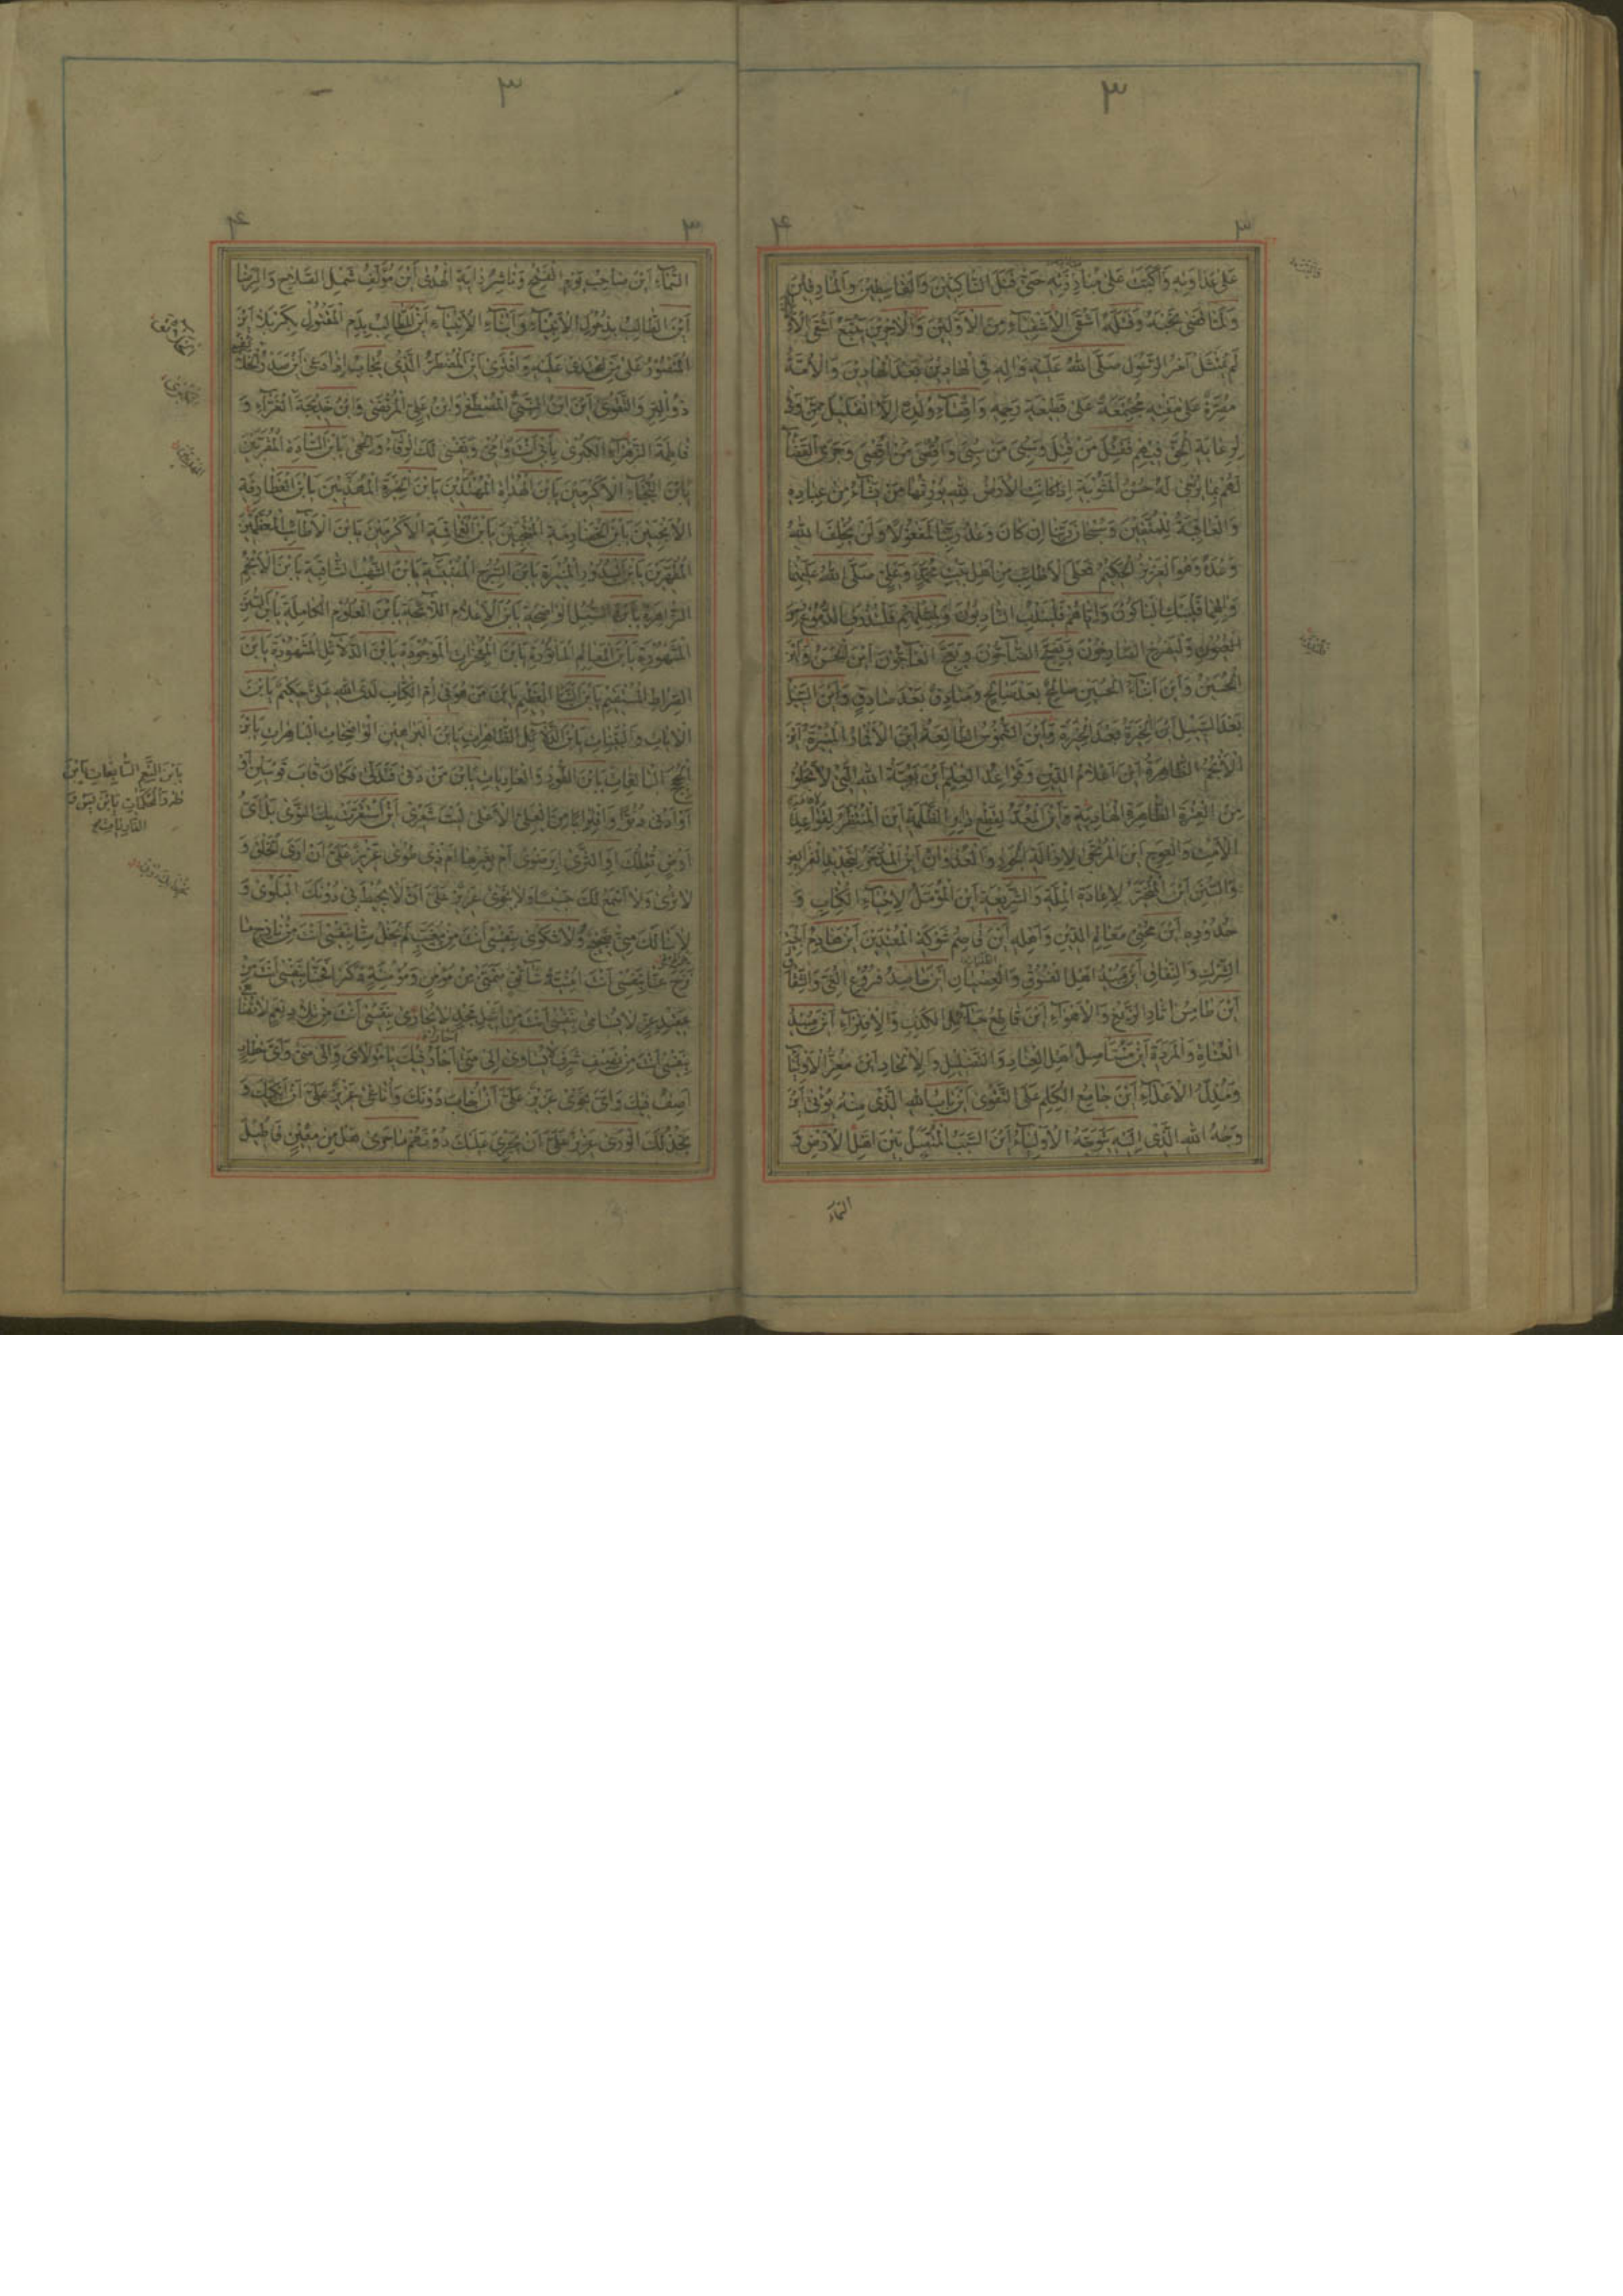 ٣
٣
٤
عَلىٰ عَدٰاوَتِهِ وَاَكَبَّتْ عَلىٰ مُنٰابَذَتِهِ حَتّىٰ قَتَلَ النّٰاكِثينَ وَالْقٰاسِطينَ وَالْمٰارِقينَ
وَلَمّٰا قَضىٰ نَحْبَهُ وَقَتَلَهُ اَشْقَى الْاَشْقِيٰاءِ مِنَ الْاَوَّلينَ وَالْاٰخِرينَ يَتْبَعُ اَشْقَى
لَمْ يُمْتَثَلْ اَمْرُ الرَّسُولِ صَلَّى اللّٰهُ عَلَيْهِ وَاٰلِهِ فِى الْهٰادينَ بَعْدَ الْهٰادينَ وَالْاُمَّةُ
مُصِرَّةٌ عَلىٰ مَقْتِهِ مُجْتَمِعَةٌ عَلىٰ قَطيعَةِ رَحِمِهِ وَاِقْصٰاءِ وُلْدِهِ اِلَّا الْقَليلَ مِمَّنْ وَفىٰ
لِرِعٰايَةِ الْحَقِّ فيهِمْ فَقُتِلَ مَنْ قُتِلَ وَسُبِىَ مَنْ سُبِىَ وَاُقْصِىَ مَنْ اُقْصِىَ وَجَرَى الْقَضٰاءُ
لَهُمْ بِمٰا يُرْجىٰ لَهُ حُسْنُ الْمَثُوبَةِ اِذْ كٰانَتِ الْاَرْضُ لِلّٰهِ يُورِثُهٰا مَنْ يَشٰاءُ مِنْ عِبٰادِهِ
وَالْعٰاقِبَةُ لِلْمُتَّقينَ وَسُبْحٰانَ رَبِّنٰا اِنْ كٰانَ وَعْدُ رَبِّنٰا لَمَفْعُولًا وَلَنْ يُخْلِفَ اللّٰهُ
وَعْدَهُ وَهُوَ الْعَزيزُ الْحَكيمُ فَعَلَى الْاَطٰايِبِ مِنْ اَهْلِ بَيْتِ مُحَمَّدٍ وَعَلِىٍّ صَلَّى اللّٰهُ عَلَيْهِمٰا
وَاٰلِهِمٰا فَلْيَبْكِ الْبٰاكُونَ وَاِيّٰاهُمْ فَلْيَنْدُبِ النّٰادِبُونَ وَلِمِثْلِهِمْ فَلْتَذْرِفِ الدُّمُوعُ مِنَ
الْعُيُونِ وَلْيَصْرُخِ الصّٰارِخُونَ وَيَضِجَّ الضّٰاجُّونَ وَيَعِجَّ الْعٰاجُّونَ اَيْنَ الْحَسَنُ وَاَيْنَ
الْحُسَيْنُ وَاَيْنَ اَبْنٰاءُ الْحُسَيْنِ صٰالِحٌ بَعْدَ صٰالِحٍ وَصٰادِقٌ بَعْدَ صٰادِقٍ وَاَيْنَ السَّبيلُ
بَعْدَ السَّبيلِ اَيْنَ الْخِيَرَةُ بَعْدَ الْخِيَرَةِ وَاَيْنَ الشُّمُوسُ الطّٰالِعَةُ اَيْنَ الْاَقْمٰارُ الْمُنيرَةُ اَيْنَ
الْاَنْجُمُ الظّٰاهِرَةُ اَيْنَ اَعْلٰامُ الدّينِ وَقَوٰاعِدُ الْعِلْمِ اَيْنَ بَقِيَّةُ اللّٰهِ الَّتى لٰا تَخْلُو
مِنَ الْعِتْرَةِ الطّٰاهِرَةِ الْهٰادِيَةِ اَيْنَ الْمُعَدُّ لِقَطْعِ دٰابِرِ الظَّلَمَةِ اَيْنَ الْمُنْتَظَرُ لِاِقٰامَةِ
الْاَمْتِ وَالْعِوَجِ اَيْنَ الْمُرْتَجىٰ لِاِزٰالَةِ الْجَوْرِ وَالْعُدْوٰانِ اَيْنَ الْمُدَّخَرُ لِتَجْديدِ الْفَرٰائِضِ
وَالسُّنَنِ اَيْنَ الْمُتَخَيَّرُ لِاِعٰادَةِ الْمِلَّةِ وَالشَّريعَةِ اَيْنَ الْمُؤَمَّلُ لِاِحْيٰاءِ الْكِتٰابِ وَ
حُدُودِهِ اَيْنَ مُحْيى مَعٰالِمِ الدّينِ وَاَهْلِهِ اَيْنَ قٰاصِمُ شَوْكَةِ الْمُعْتَدينَ اَيْنَ هٰادِمُ اَبْنِيَةِ
الشِّرْكِ وَالنِّفٰاقِ اَيْنَ مُبيدُ اَهْلِ الْفُسُوقِ وَالْعِصْيٰانِ اَيْنَ حٰاصِدُ فُرُوعِ الْغَىِّ وَالشِّقٰاقِ
اَيْنَ طٰامِسُ اٰثٰارِ الزَّيْغِ وَالْاَهْوٰاءِ اَيْنَ قٰاطِعُ حَبٰائِلِ الْكِذْبِ وَالْاِفْتِرٰاءِ اَيْنَ مُبيدُ
الْعُتٰاةِ وَالْمَرَدَةِ اَيْنَ مُسْتَأْصِلُ اَهْلِ الْعِنٰادِ وَالتَّضْليلِ وَالْاِلْحٰادِ اَيْنَ مُعِزُّ الْاَوْلِيٰاءِ
وَمُذِلُّ الْاَعْدٰاءِ اَيْنَ جٰامِعُ الْكَلِمِ عَلَى التَّقْوىٰ اَيْنَ بٰابُ اللّٰهِ الَّذى مِنْهُ يُؤْتىٰ اَيْنَ
وَجْهُ اللّٰهِ الَّذى اِلَيْهِ يَتَوَجَّهُ الْاَوْلِيٰاءُ اَيْنَ السَّبَبُ الْمُتَّصِلُ بَيْنَ اَهْلِ الْاَرْضِ وَ
السَّمٰاءِ
٣
٣
٤
السَّمٰاءِ اَيْنَ صٰاحِبُ يَوْمِ الْفَتْحِ وَنٰاشِرُ رٰايَةِ الْهُدىٰ اَيْنَ مُؤَلِّفُ شَمْلِ الصَّلٰاحِ وَالرِّضٰا
اَيْنَ الطّٰالِبُ بِذُحُولِ الْاَنْبِيٰاءِ وَاَبْنٰاءِ الْاَنْبِيٰاءِ اَيْنَ الطّٰالِبُ بِدَمِ الْمَقْتُولِ بِكَرْبَلٰا اَيْنَ
الْمَنْصُورُ عَلىٰ مَنِ اعْتَدىٰ عَلَيْهِ وَافْتَرىٰ اَيْنَ الْمُضْطَرُّ الَّذى يُجٰابُ اِذٰا دَعىٰ اَيْنَ صَدْرُ
ذُو الْبِرِّ وَالتَّقْوىٰ اَيْنَ ابْنُ النَّبِىِّ الْمُصْطَفىٰ وَابْنُ عَلِىٍّ الْمُرْتَضىٰ وَابْنُ خَديجَةَ الْغَرّٰاءِ وَ
فٰاطِمَةَ الزَّهْرٰاءِ الْكُبْرىٰ بِاَبى اَنْتَ وَاُمّى وَنَفْسى لَكَ الْوِقٰاءُ وَالْحِمىٰ يَابْنَ السّٰادَةِ الْمُقَرَّبينَ
يَابْنَ النُّجَبٰاءِ الْاَكْرَمينَ يَابْنَ الْهُدٰاةِ الْمُهْتَدينَ يَابْنَ الْخِيَرَةِ الْمُهَذَّبينَ يَابْنَ الْغَطٰارِفَةِ
الْاَنْجَبينَ يَابْنَ الْخَضٰارِمَةِ الْمُنْتَجَبينَ يَابْنَ الْقَمٰاقِمَةِ الْاَكْرَمينَ يَابْنَ الْاَطٰائِبِ الْمُعَظَّمينَ
الْمُطَهَّرينَ يَابْنَ الْبُدُورِ الْمُنيرَةِ يَابْنَ السُّرُجِ الْمُضيئَةِ يَابْنَ الشُّهُبِ الثّٰاقِبَةِ يَابْنَ الْاَنْجُمِ
الزّٰاهِرَةِ يَابْنَ السُّبُلِ الْوٰاضِحَةِ يَابْنَ الْاَعْلٰامِ اللّٰائِحَةِ يَابْنَ الْعُلُومِ الْكٰامِلَةِ يَابْنَ السُّنَنِ
الْمَشْهُورَةِ يَابْنَ الْمَعٰالِمِ الْمَأْثُورَةِ يَابْنَ الْمُعْجِزٰاتِ الْمَوْجُودَةِ يَابْنَ الدَّلٰائِلِ الْمَشْهُودَةِ يَابْنَ
الصِّرٰاطِ الْمُسْتَقيمِ يَابْنَ النَّبَأِ الْعَظيمِ يَابْنَ مَنْ هُوَ فى اُمِّ الْكِتٰابِ لَدَى اللّٰهِ عَلِىٌّ حَكيمٌ يَابْنَ
الْاٰيٰاتِ وَالْبَيِّنٰاتِ يَابْنَ الدَّلٰائِلِ الظّٰاهِرٰاتِ يَابْنَ الْبَرٰاهينِ الْوٰاضِحٰاتِ الْبٰاهِرٰاتِ يَابْنَ
الْحُجَجِ الْبٰالِغٰاتِ يَابْنَ الطُّورِ وَالْعٰادِيٰاتِ يَابْنَ مَنْ دَنىٰ فَتَدَلّىٰ فَكٰانَ قٰابَ قَوْسَيْنِ
اَوْ اَدْنىٰ دُنُوًّا وَاقْتِرٰابًا مِنَ الْعَلِىِّ الْاَعْلىٰ لَيْتَ شِعْرى اَيْنَ اسْتَقَرَّتْ بِكَ النَّوىٰ بَلْ اَىُّ
اَرْضٍ تُقِلُّكَ اَوِ الثَّرىٰ اَبِرَضْوىٰ اَمْ بِغَيْرِهٰا اَمْ ذى طُوىٰ عَزيزٌ عَلَىَّ اَنْ اَرَى الْخَلْقَ وَ
لٰا تُرىٰ وَلٰا اَسْمَعُ لَكَ حَسيسًا وَلٰا نَجْوىٰ عَزيزٌ عَلَىَّ اَنْ لٰا يُحيطَ بى دُونَكَ الْبَلْوىٰ وَ
لٰا يَنٰالَكَ مِنّى ضَجيجٌ وَلٰا شَكْوىٰ بِنَفْسى اَنْتَ مِنْ مُغَيَّبٍ لَمْ يَخْلُ مِنّٰا بِنَفْسى اَنْتَ مِنْ نٰازِحٍ مٰا
نَزَحَ عَنّٰا بِنَفْسى اَنْتَ اُمْنِيَّةُ شٰائِقٍ يَتَمَنّىٰ مِنْ مُؤْمِنٍ وَمُؤْمِنَةٍ ذَكَرٰا فَحَنّٰا بِنَفْسى اَنْتَ مِنْ
عَقيدِ عِزٍّ لٰا يُسٰامىٰ بِنَفْسى اَنْتَ مِنْ اَثيلِ مَجْدٍ لٰا يُجٰازىٰ بِنَفْسى اَنْتَ مِنْ تِلٰادِ نِعَمٍ لٰا
بِنَفْسى اَنْتَ مِنْ نَصيفِ شَرَفٍ لٰا يُسٰاوىٰ اِلىٰ مَتىٰ اَحٰارُ فيكَ يٰا مَوْلٰاىَ وَاِلىٰ مَتىٰ وَاَىَّ خِطٰابٍ
اَصِفُ فيكَ وَاَىَّ نَجْوىٰ عَزيزٌ عَلَىَّ اَنْ اُجٰابَ دُونَكَ وَاُنٰاغىٰ عَزيزٌ عَلَىَّ اَنْ اَبْكِيَكَ وَ
يَخْذُلَكَ الْوَرىٰ عَزيزٌ عَلَىَّ اَنْ يَجْرِىَ عَلَيْكَ دُونَهُمْ مٰا جَرىٰ هَلْ مِنْ مُعينٍ فَاُطيلَ
يَابْنَ النِّعَمِ السّٰابِغٰاتِ يَابْنَ
طٰهٰ وَالْمُحْكَمٰاتِ يَابْنَ يٰس وَ